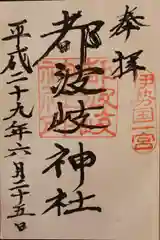 奉拝
伊勢国一宮
都波岐神社
平成二十九年六月二十五日